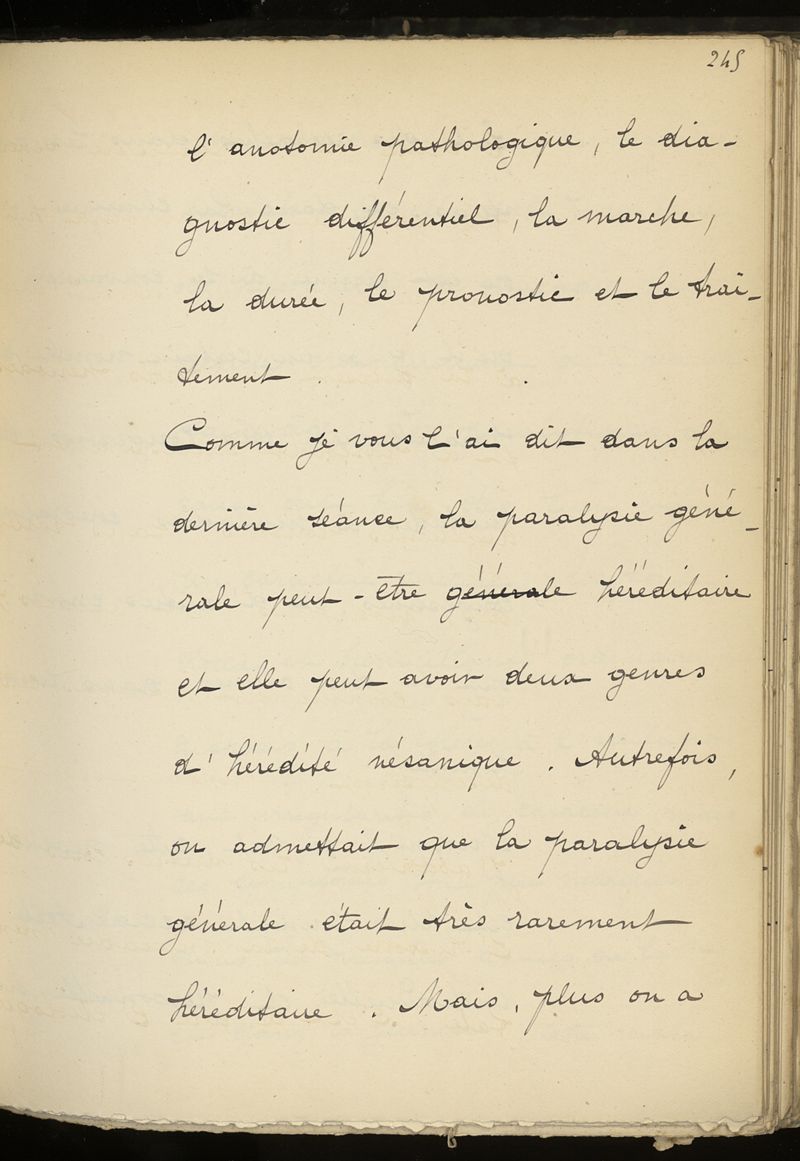 245
l'anatomie pathologique, le dia-
gnostic différentiel, la marche,
la durée, le pronostic et le trai-
tement.
Comme je vous l'ai dit dans la
dernière séance, la paralysie géné-
rale peut-être générale héréditaire
et elle peut avoir deux genres
d'hérédité vésanique. Autrefois,
on admettait que la paralysie
générale était très rarement
héréditaire. Mais, plus on a